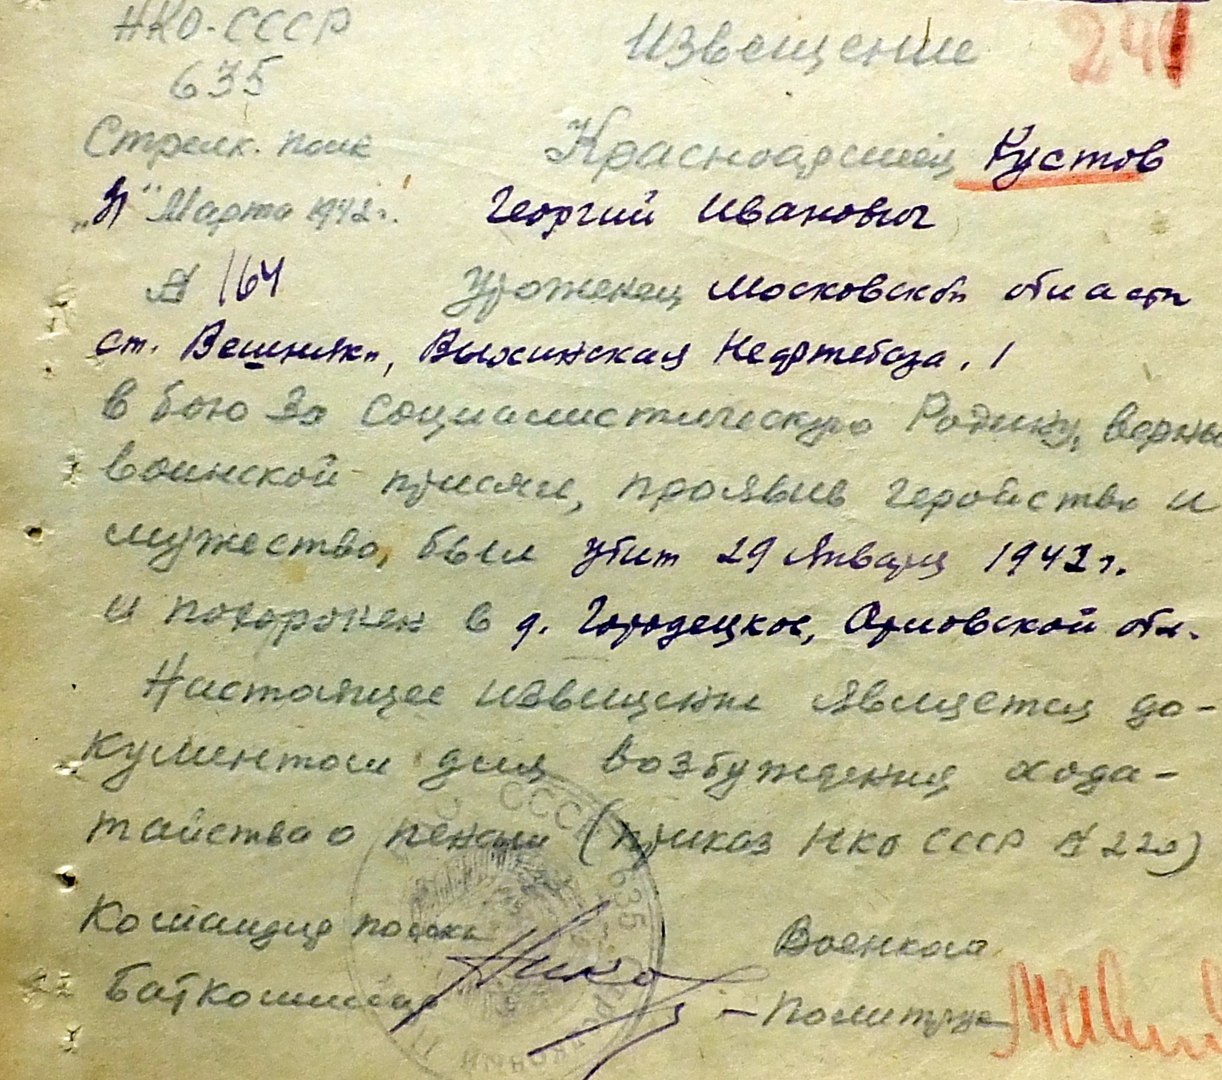 НКО-СССР
Извещение
241
635
Стрелк. полк
Красноармеец Кустов
„31" Марта 1942 г.
Георгий Иванович
№ 164
Уроженец Московской области
ст. Вешняки, Выхинская Нефтебаза, 1
в бою за социалистическую Родину, верный
воинской присяги, проявив геройство и
мужество, был убит 29 Января 1942 г.
и похоронен в д. Городецкое, Орловской обл.
Настоящее извещение является до-
кументом для возбуждения хода-
тайства о пенсии (приказ НКО СССР № 220)
Командир полка
Военком
Баткомиссар
Политрук
СССР 635 Стрелковый П